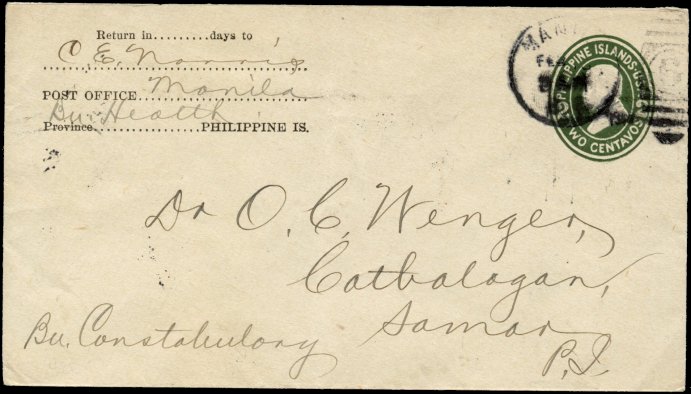 Return in.........days to
O. E. Norris
POST OFFICE Manila
Bu. Health
Province...................PHILIPPINE IS.
MAN
FE
PHILIPPINE ISLANDS·U.S.
TWO CENTAVOS
Dr O. C. Wenger,
Catbalogan,
Bu. Constabulary Samar
P. I.